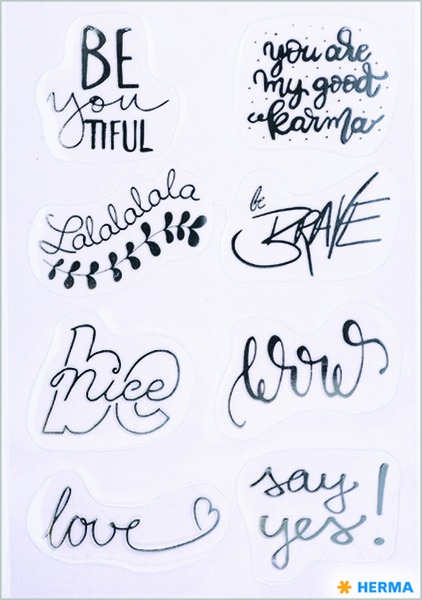 BE
you
TIFUL
you are
my good
karma
Lalalalala
be
BRAVE
be
nice
wow
love
say
yes!
HERMA